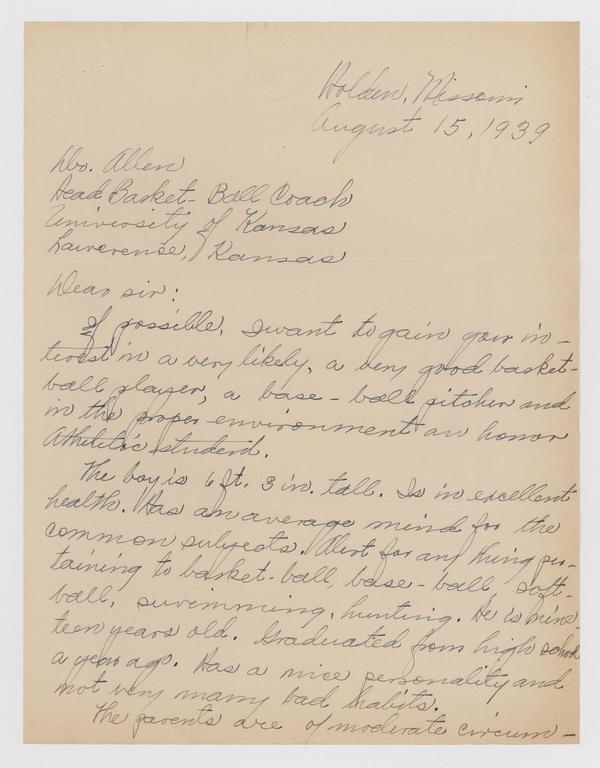 Holden, Missouri
August 15, 1939
Dr. Allen
Head Basket-Ball Coach
University of Kansas
Lawerence, Kansas
Dear sir:
If possible, I want to gain your in-
terest in a very likely, a very good basket-
ball player, a base-ball pitcher and
in the proper environment an honor
Athletic student.
The boy is 6 ft. 3 in. tall. Is in excellent
health. Has an average mind for the
common subjects. Alert for any thing per-
taining to basket-ball, base-ball, soft-
ball, swimming, hunting. He is nine-
teen years old. Graduated from high school
a year ago. Has a nice personality and
not very many bad habits.
The parents are of moderate circum-